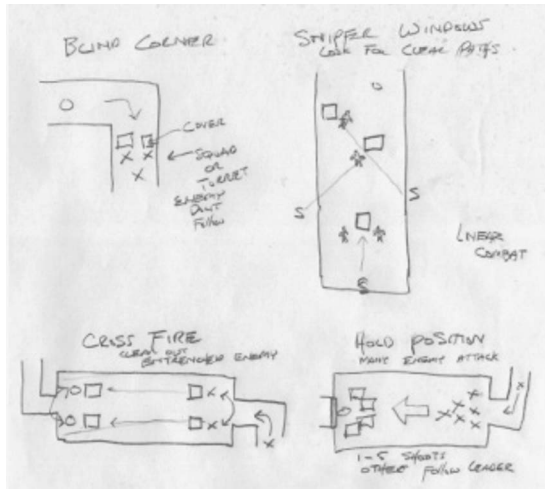 BLIND CORNER
COVER
SQUAD
OR
TURRET
ENEMY
DON'T
FOLLOW
SNIPER WINDOWS
LOOK FOR CLEAR PATHS
S
S
S
LINEAR
COMBAT
CROSS FIRE
CLEAR OUT
ENTRENCHED ENEMY
HOLD POSITION
MAKE ENEMY ATTACK
1-5 SHOOTS
OTHERS FOLLOW LEADER